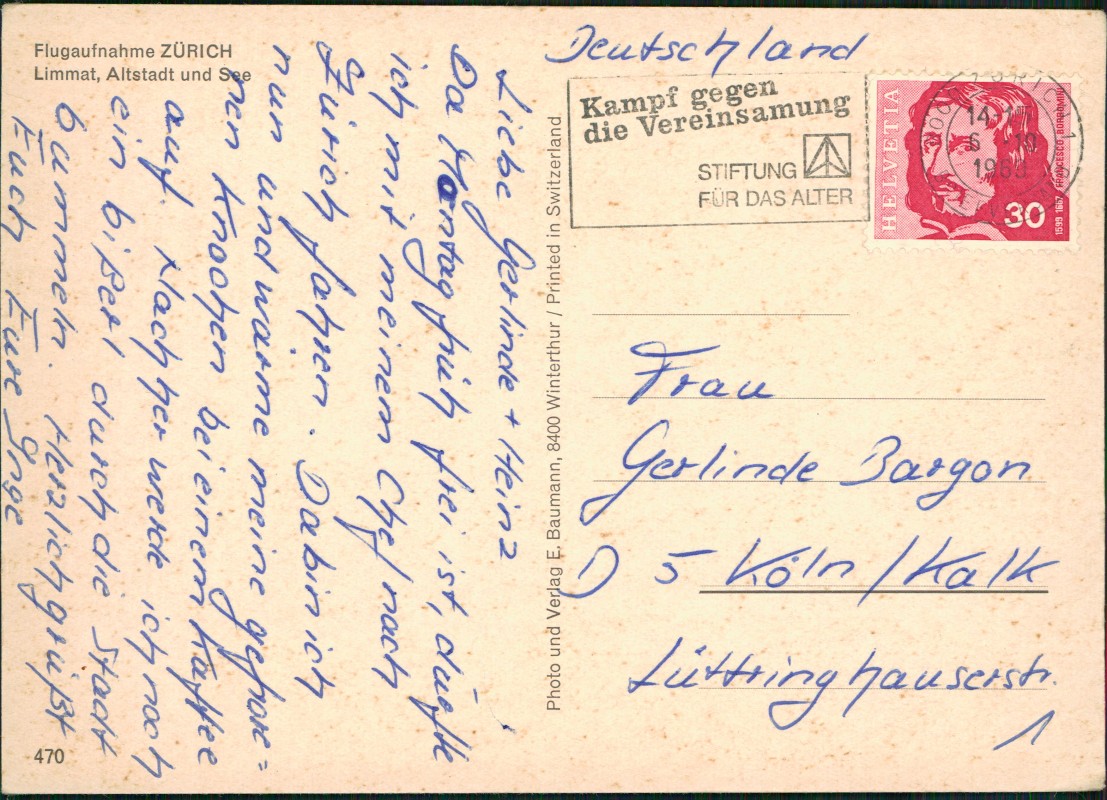 Flugaufnahme ZÜRICH
Limmat, Altstadt und See
Liebe Gerlinde + Heinz
Da Montag früh frei ist, dürfte
ich mit meinem Chef nach
Zürich fahren. Da bin ich
nun und wärme meine gefrore=
nen Knochen bei einem Kaffee
auf. Nachher werde ich noch
ein bißerl durch die Stadt
bummeln. Herzlich grüßt
Euch Eure Inge
470
Photo und Verlag E. Baumann, 8400 Winterthur / Printed in Switzerland.
Deutschland
Kampf gegen
die Vereinsamung
STIFTUNG
FÜR DAS ALTER
HELVETIA
30
1599 1667 FRANCESCO BORROMINI
Frau
Gerlinde Bargon
D 5 Köln/Kalk
Lüttringhauserstr.
1